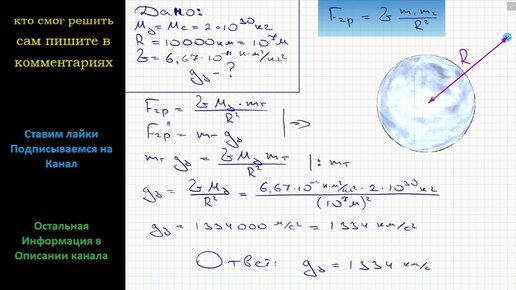 кто смог решить
сам пишите в
комментариях
Ставим лайки
Подписываемся на
Канал
Остальная
Информация в
Описании канала
Дано:
M₃ = Mc = 2·10³⁰ кг
R = 10000 км = 10⁷ м
G = 6,67·10⁻¹¹ Н·м²/кг²
g₃ - ?
Fгр = G m₁ m₂ / R²
R
Fгр = G M₃ · mт / R²
Fгр = mт g₃ | ⇒
mт g₃ = G M₃ mт / R² | : mт
g₃ = G M₃ / R² = 6,67·10⁻¹¹ Н·м²/кг² · 2·10³⁰ кг / (10⁷ м)²
g₃ = 1334000 м/с² = 1334 км/с²
Ответ: g₃ = 1334 км/с